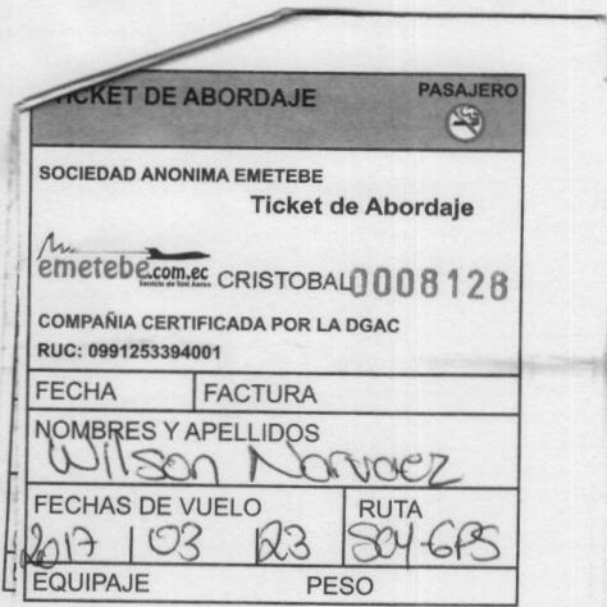 TICKET DE ABORDAJE PASAJERO
SOCIEDAD ANONIMA EMETEBE
Ticket de Abordaje
emetebe.com.ec
Servicio de Taxi Aereo
CRISTOBAL 0008128
COMPAÑIA CERTIFICADA POR LA DGAC
RUC: 0991253394001
FECHA FACTURA
NOMBRES Y APELLIDOS
Wilson Narvaez
FECHAS DE VUELO RUTA
2017 03 23 SCY-GPS
EQUIPAJE PESO